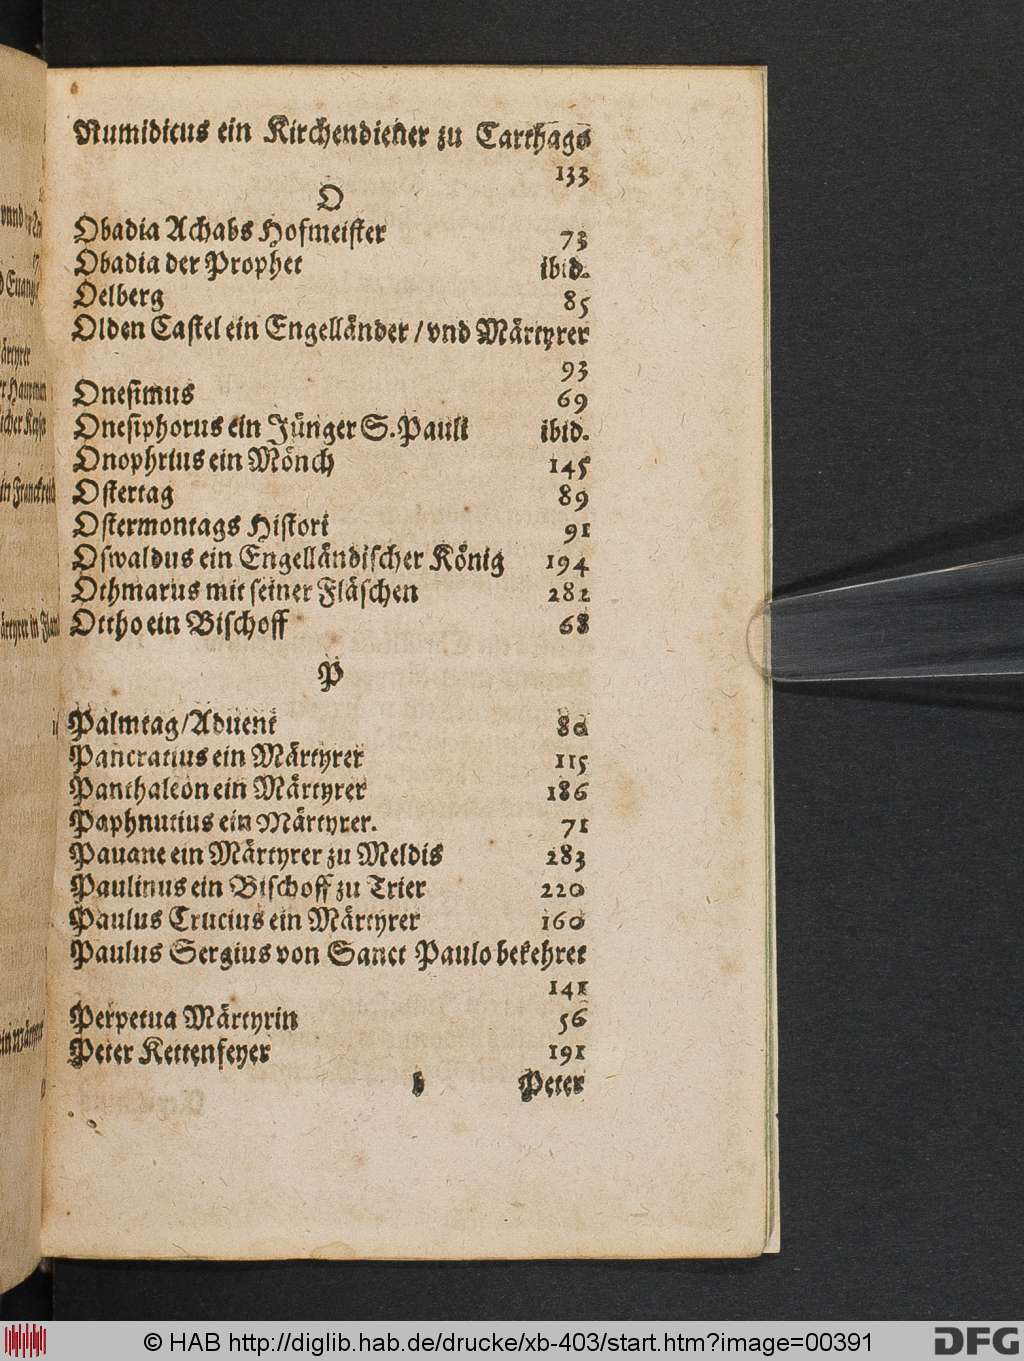 Numidicus ein Kirchendiener zu Carthago
133
O
Obadia Achabs Hofmeister 73
Obadia der Prophet ibid.
Oelberg 85
Olden Castel ein Engelländer / vnd Märtyrer
93
Onesimus 69
Onesiphorus ein Jünger S. Pauli ibid.
Onophrius ein Mönch 145
Ostertag 89
Ostermontags Histori 91
Oswaldus ein Engelländischer König 194
Othmarus mit seiner Fläschen 282
Ottho ein Bischoff 68
P
Palmtag / Aduent 80
Pancratius ein Märtyrer 115
Panthaleon ein Märtyrer 186
Paphnutius ein Märtyrer. 71
Pauane ein Märtyrer zu Meldis 283
Paulinus ein Bischoff zu Trier 220
Paulus Crucius ein Märtyrer 160
Paulus Sergius von Sanct Paulo bekehret
141
Perpetua Märtyrin 56
Peter Kettenfeyer 191
b Peter
© HAB http://diglib.hab.de/drucke/xb-403/start.htm?image=00391
DFG